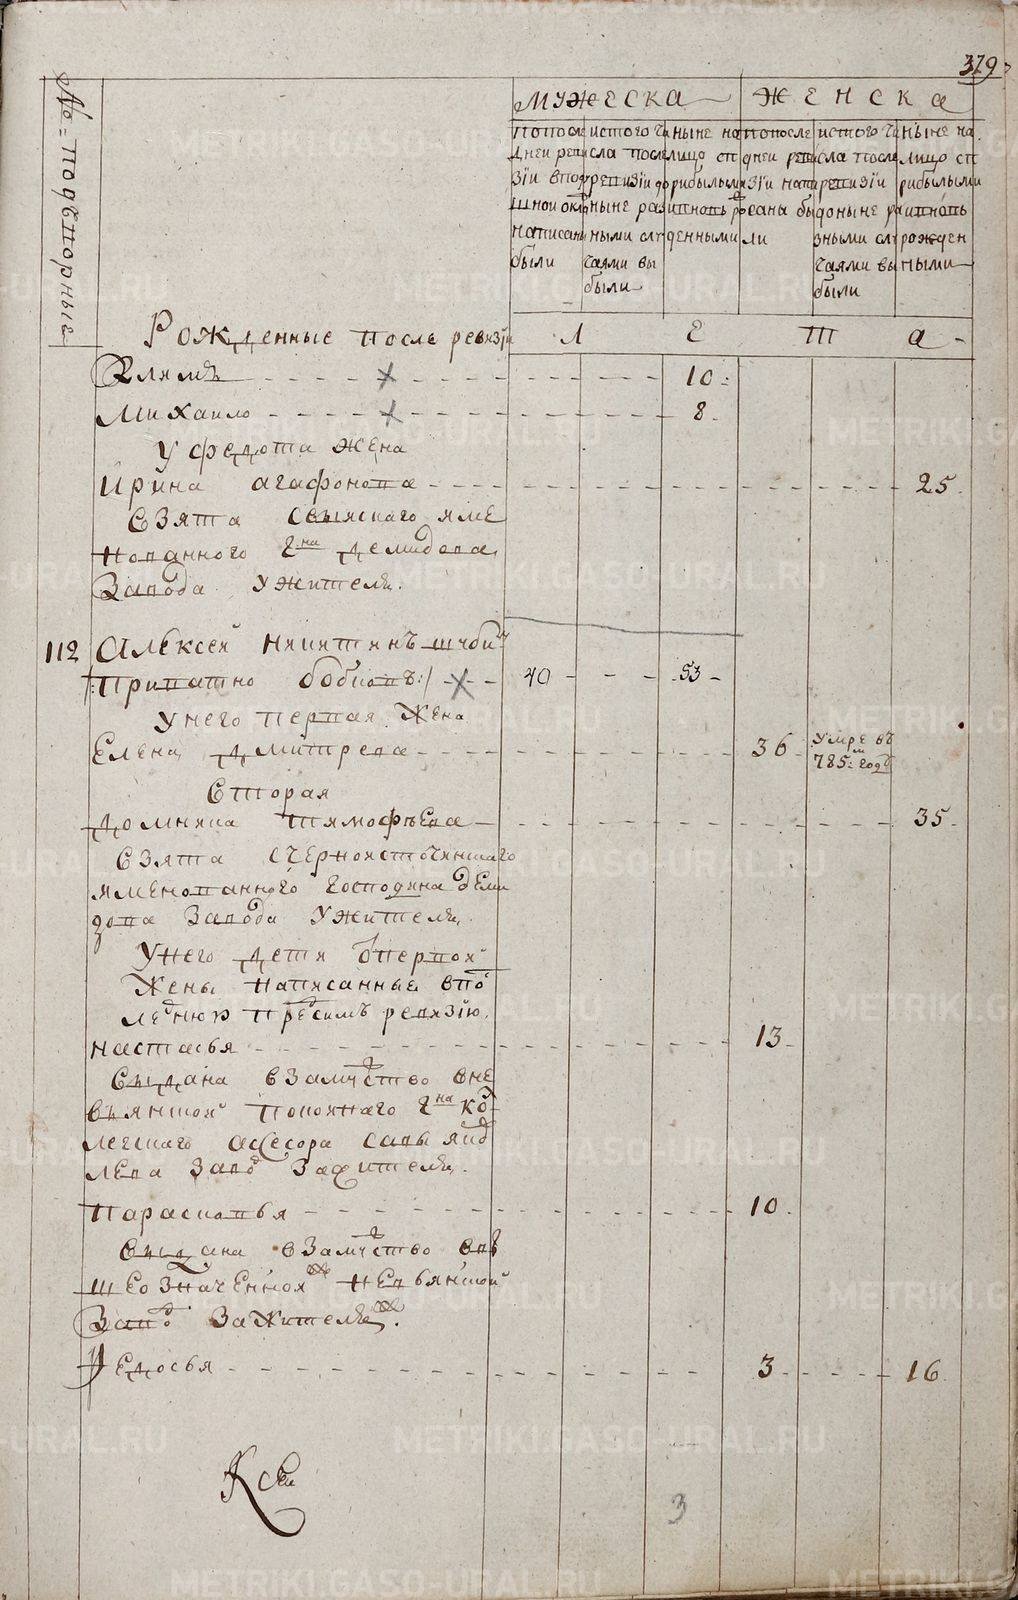 379
№ подворныя
мужеска
женска
попосле
дней реви
зїи впо
шной окла
написан
были
истого чи
сла после
ревизїи до
ныне раз
ными слу
чаями вы
были
ныне на
лицо сп
рибылыми
ивновь ро
жденными
попосле
дней реви
зїи напи
саны бы
ли
истого чи
сла после
ревизїи
доныне ра
зными слу
чаями вы
были
ныне на
лицо сп
рибылыми
ивновь
рожден
ными
Рожденные после ревизїи
Л е т а
Климъ 10
Михаило 8
У федота жена
Ирина агафонова 25
взята свыйскаго име
нованного гна демидова
завода ужителя.
112 Алексей никитинъ
приватно бобковъ 40 53
Унего первая жена
Елена дмитрева 36 умре въ
785м годѣ
вторая
домника тимофѣева 35
взята счерноисточинскаго
именованного господина деми
дова завода ужителя.
Унего дети отпервой
жены написанные впо
леднюю предсимъ ревизїю
настасья 13
выдана взамуство вне
вьянской покойнаго гна ко
лежскаго ассесора савы яко
влева завод зажителя.
Парасковья 10
выдана взамуство вы
шеозначенной невьянской
завод зажителя.
федосья 3 16
Ксеи
3
METRIKI.GASO-URAL.RU